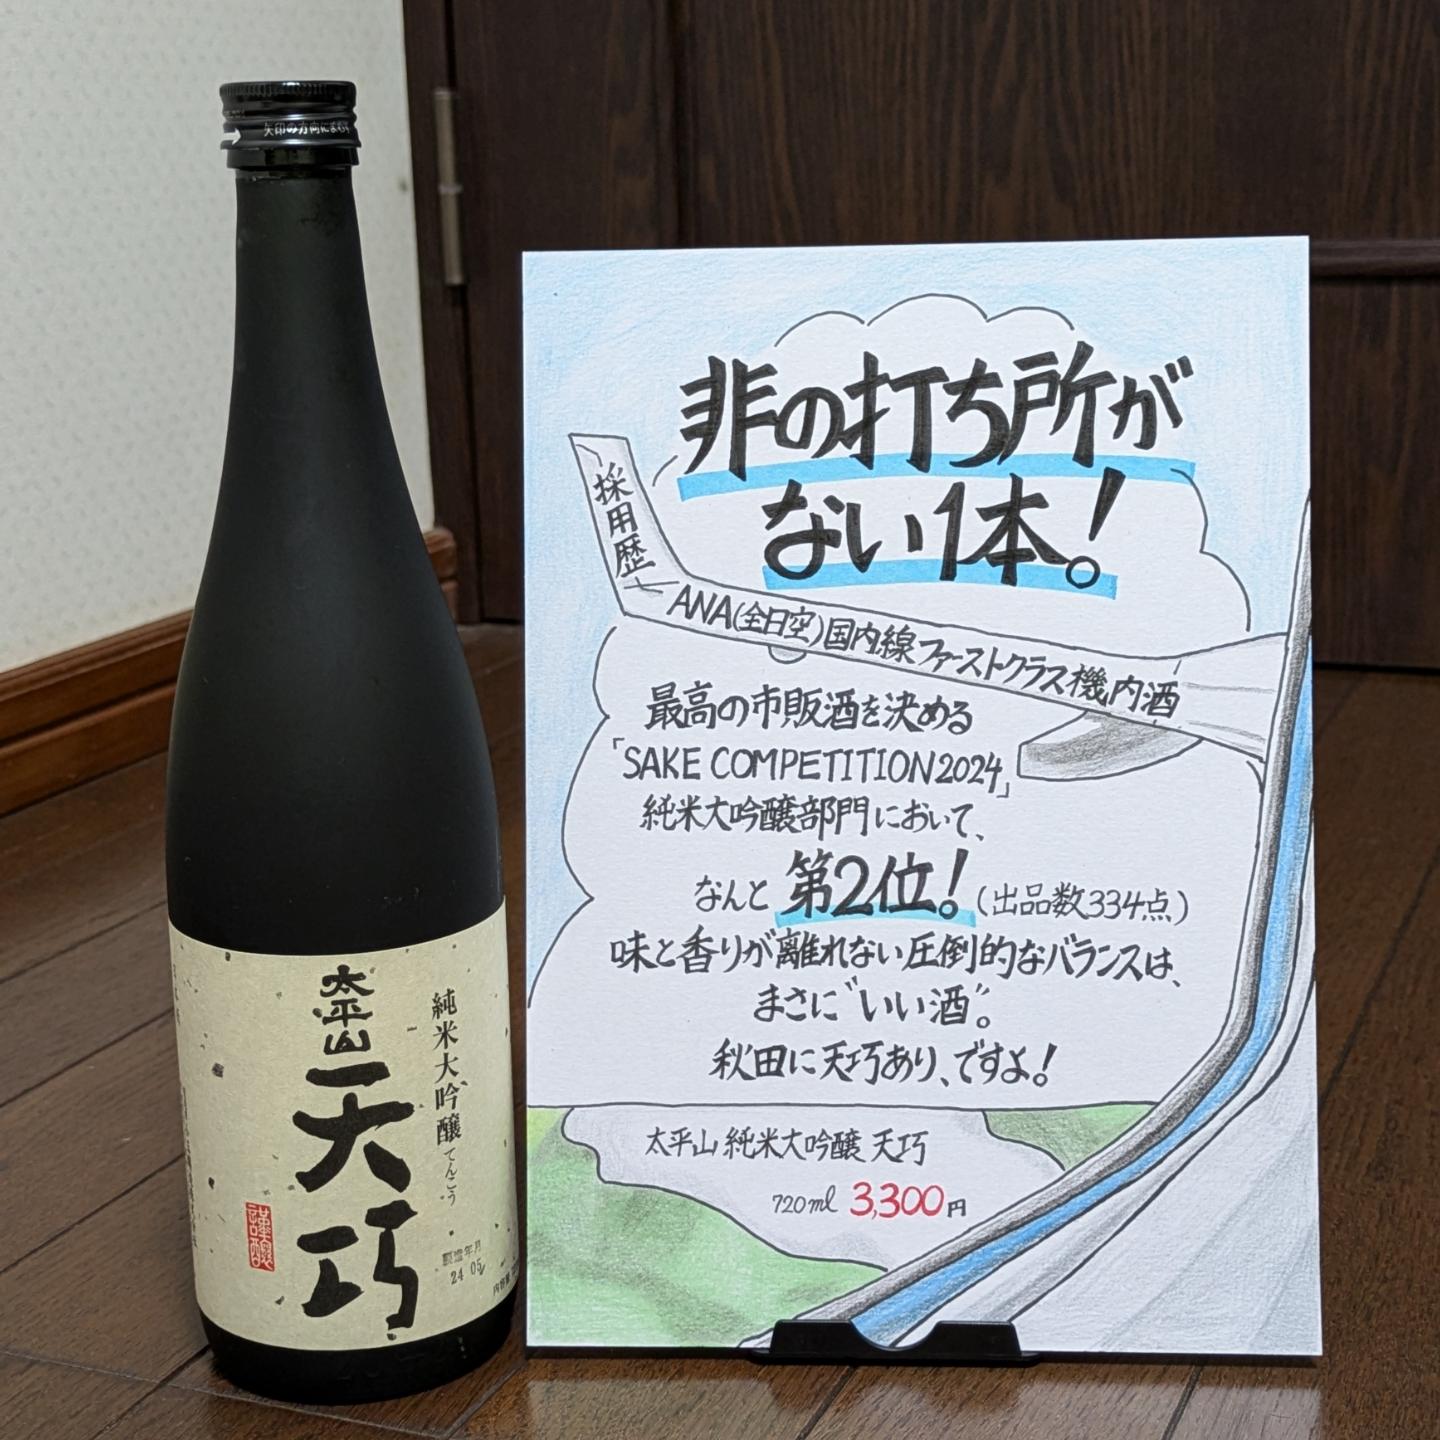 矢印の方向にまわす
太平山
天巧
純米大吟醸 てんこう
謹醸
製造年月
24 05
非の打ち所が
ない1本!
採用歴
ANA(全日空)国内線ファーストクラス機内酒
最高の市販酒を決める
「SAKE COMPETITION2024」
純米大吟醸部門において、
なんと 第2位!(出品数334点)
味と香りが離れない圧倒的なバランスは、
まさに"いい酒"。
秋田に天巧あり、ですよ!
太平山 純米大吟醸 天巧
720ml 3,300円